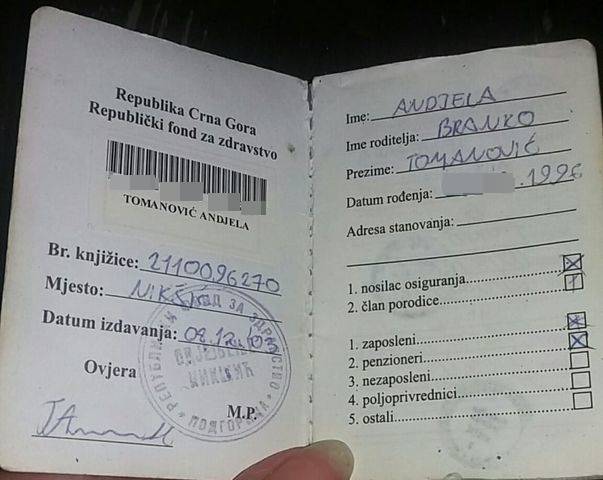 Republika Crna Gora
Republički fond za zdravstvo
TOMANOVIĆ ANDJELA
Br. knjižice: 2110096270
Mjesto: NIKŠIĆ
Datum izdavanja: 08.12.
Ovjera
M.P.
РЕПУБЛИЧКИ ФОНД ЗА ЗДРАВСТВО
ПОДГОРИЦА
НИКШИЋ
Ime: ANDJELA
Ime roditelja: BRANKO
Prezime: TOMANOVIĆ
Datum rođenja: .1996
Adresa stanovanja:
1. nosilac osiguranja
2. član porodice
1. zaposleni
2. penzioneri
3. nezaposleni
4. poljoprivrednici
5. ostali